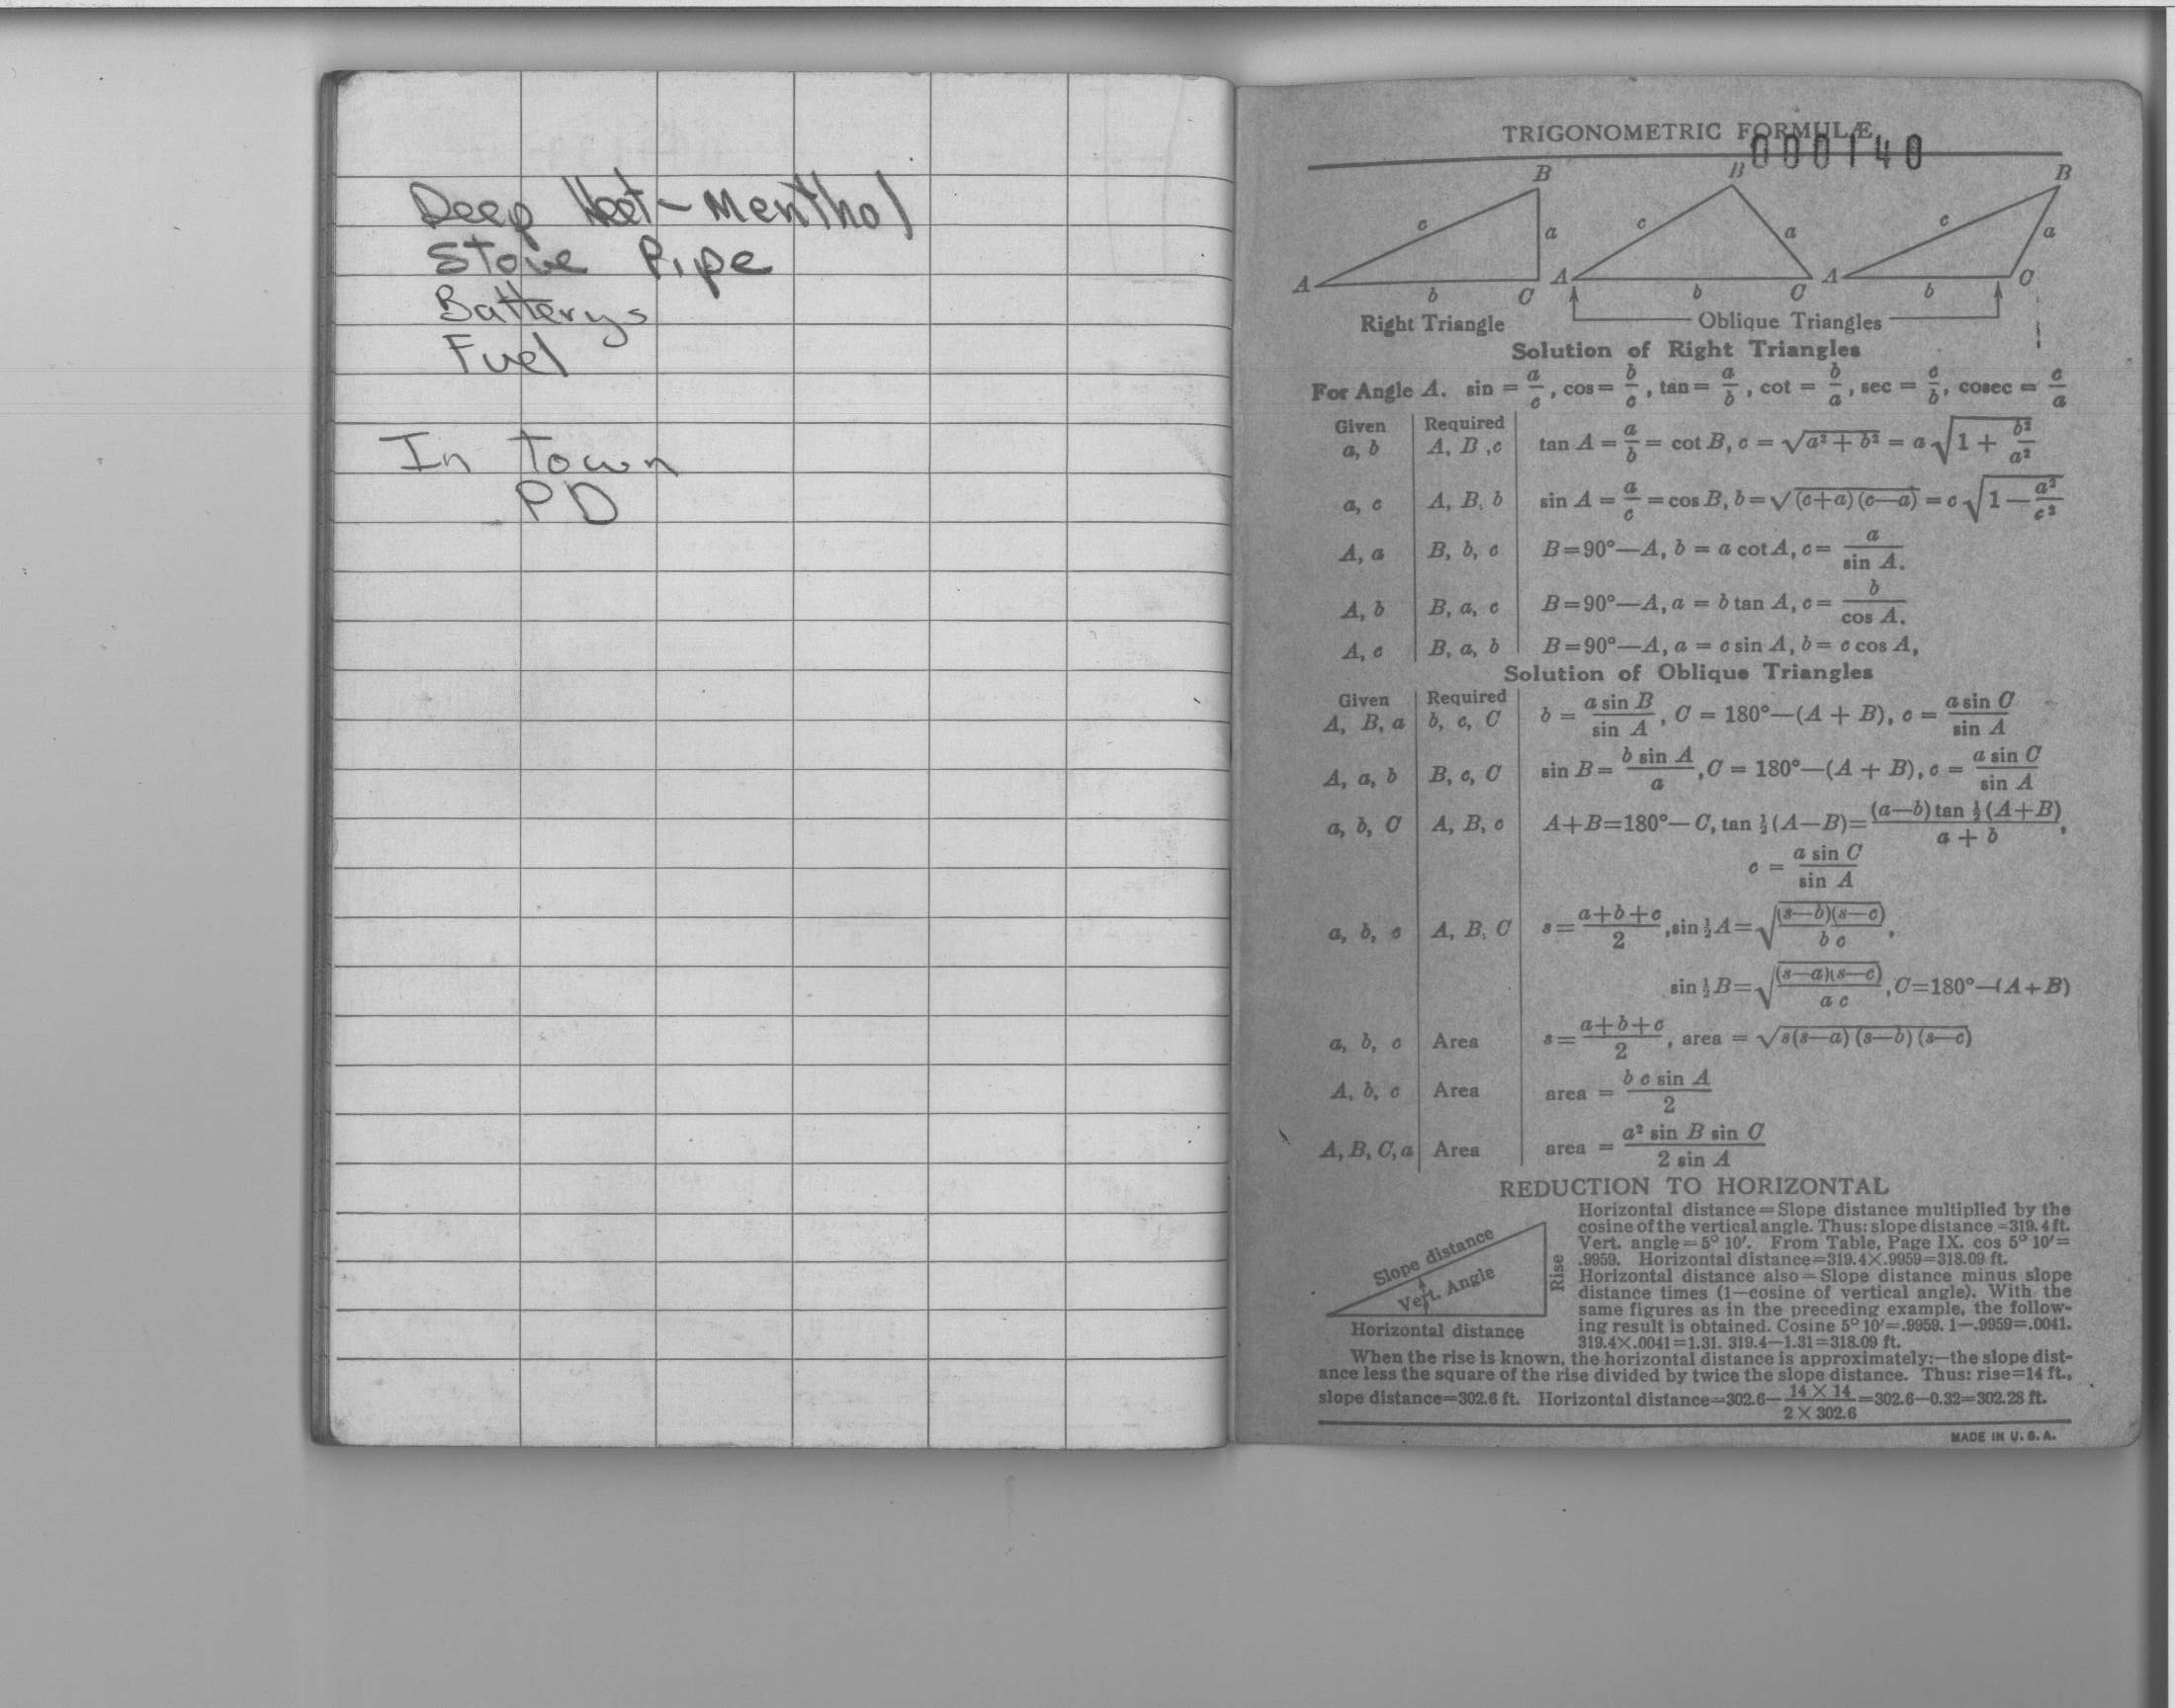 Deep Heet - Menthol
Stove Pipe
Batterys
Fuel
In Town
PD
TRIGONOMETRIC FORMULÆ
000140
B
c
a
A
b
C
Right Triangle
B
c
a
A
b
C
B
c
a
A
b
C
Oblique Triangles
Solution of Right Triangles
For Angle A. sin = a/c, cos = b/c, tan = a/b, cot = b/a, sec = c/b, cosec = c/a
Given Required
a, b A, B, c tan A = a/b = cot B, c = √(a² + b²) = a √(1 + b²/a²)
a, c A, B, b sin A = a/c = cos B, b = √((c+a)(c—a)) = c √(1 — a²/c²)
A, a B, b, c B=90°—A, b = a cot A, c = a/sin A.
A, b B, a, c B=90°—A, a = b tan A, c = b/cos A.
A, c B, a, b B=90°—A, a = c sin A, b = c cos A,
Solution of Oblique Triangles
Given Required
A, B, a b, c, C b = a sin B/sin A, C = 180°—(A + B), c = a sin C/sin A
A, a, b B, c, C sin B = b sin A/a, C = 180°—(A + B), c = a sin C/sin A
a, b, C A, B, c A+B=180°—C, tan ½(A—B) = (a—b) tan ½(A+B)/a + b,
c = a sin C/sin A
a, b, c A, B, C s = a+b+c/2, sin ½A = √((s—b)(s—c)/b c),
sin ½B = √((s—a)(s—c)/a c), C=180°—(A+B)
a, b, c Area s = a+b+c/2, area = √(s(s—a)(s—b)(s—c))
A, b, c Area area = b c sin A/2
A, B, C, a Area area = a² sin B sin C/2 sin A
REDUCTION TO HORIZONTAL
Slope distance
Vert. Angle
Rise
Horizontal distance
Horizontal distance=Slope distance multiplied by the
cosine of the vertical angle. Thus: slope distance =319.4 ft.
Vert. angle=5° 10′. From Table, Page IX. cos 5° 10′=
.9959. Horizontal distance=319.4×.9959=318.09 ft.
Horizontal distance also=Slope distance minus slope
distance times (1—cosine of vertical angle). With the
same figures as in the preceding example, the follow-
ing result is obtained. Cosine 5° 10′=.9959. 1—.9959=.0041.
319.4×.0041=1.31. 319.4—1.31=318.09 ft.
When the rise is known, the horizontal distance is approximately:—the slope dist-
ance less the square of the rise divided by twice the slope distance. Thus: rise=14 ft.,
slope distance=302.6 ft. Horizontal distance=302.6— 14 × 14/2 × 302.6 =302.6—0.32=302.28 ft.
MADE IN U.S.A.